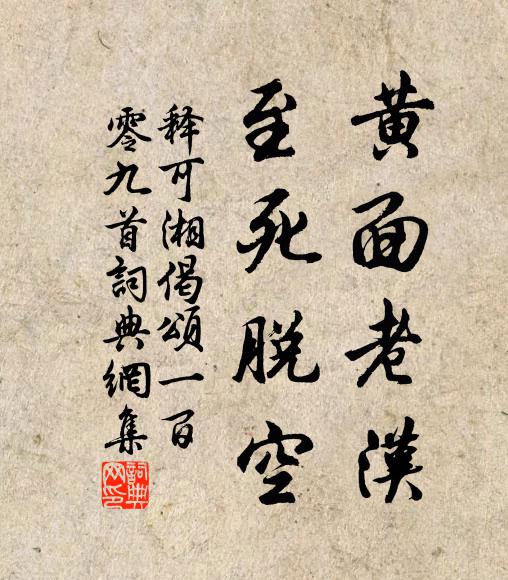 黄面老漢
至死脱空
释可湘偈頌一百
零九首詞典網集
詞典
网印